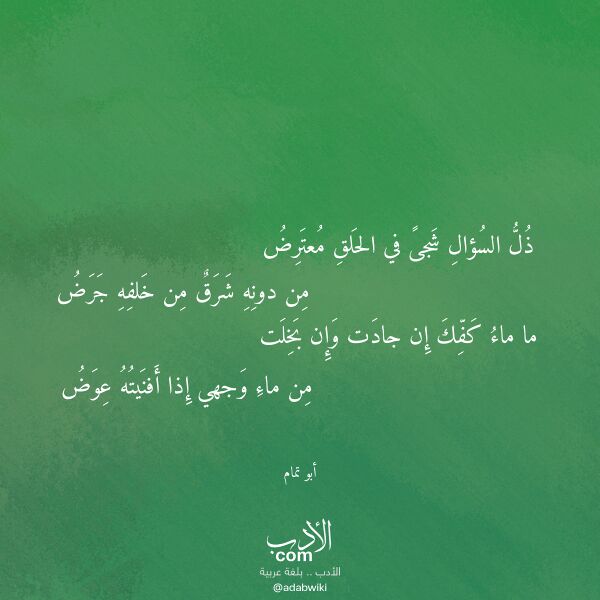 ذُلُّ السُؤالِ شَجىً في الحَلقِ مُعتَرِضُ
مِن دونِهِ شَرَقٌ مِن خَلفِهِ جَرَضُ
ما ماءُ كَفِّكَ إِن جادَت وَإِن بَخِلَت
مِن ماءِ وَجهي إِذا أَفنَيتُهُ عِوَضُ
أبو تمام
الأدب
com
الأدب .. بلغة عربية
@adabwiki